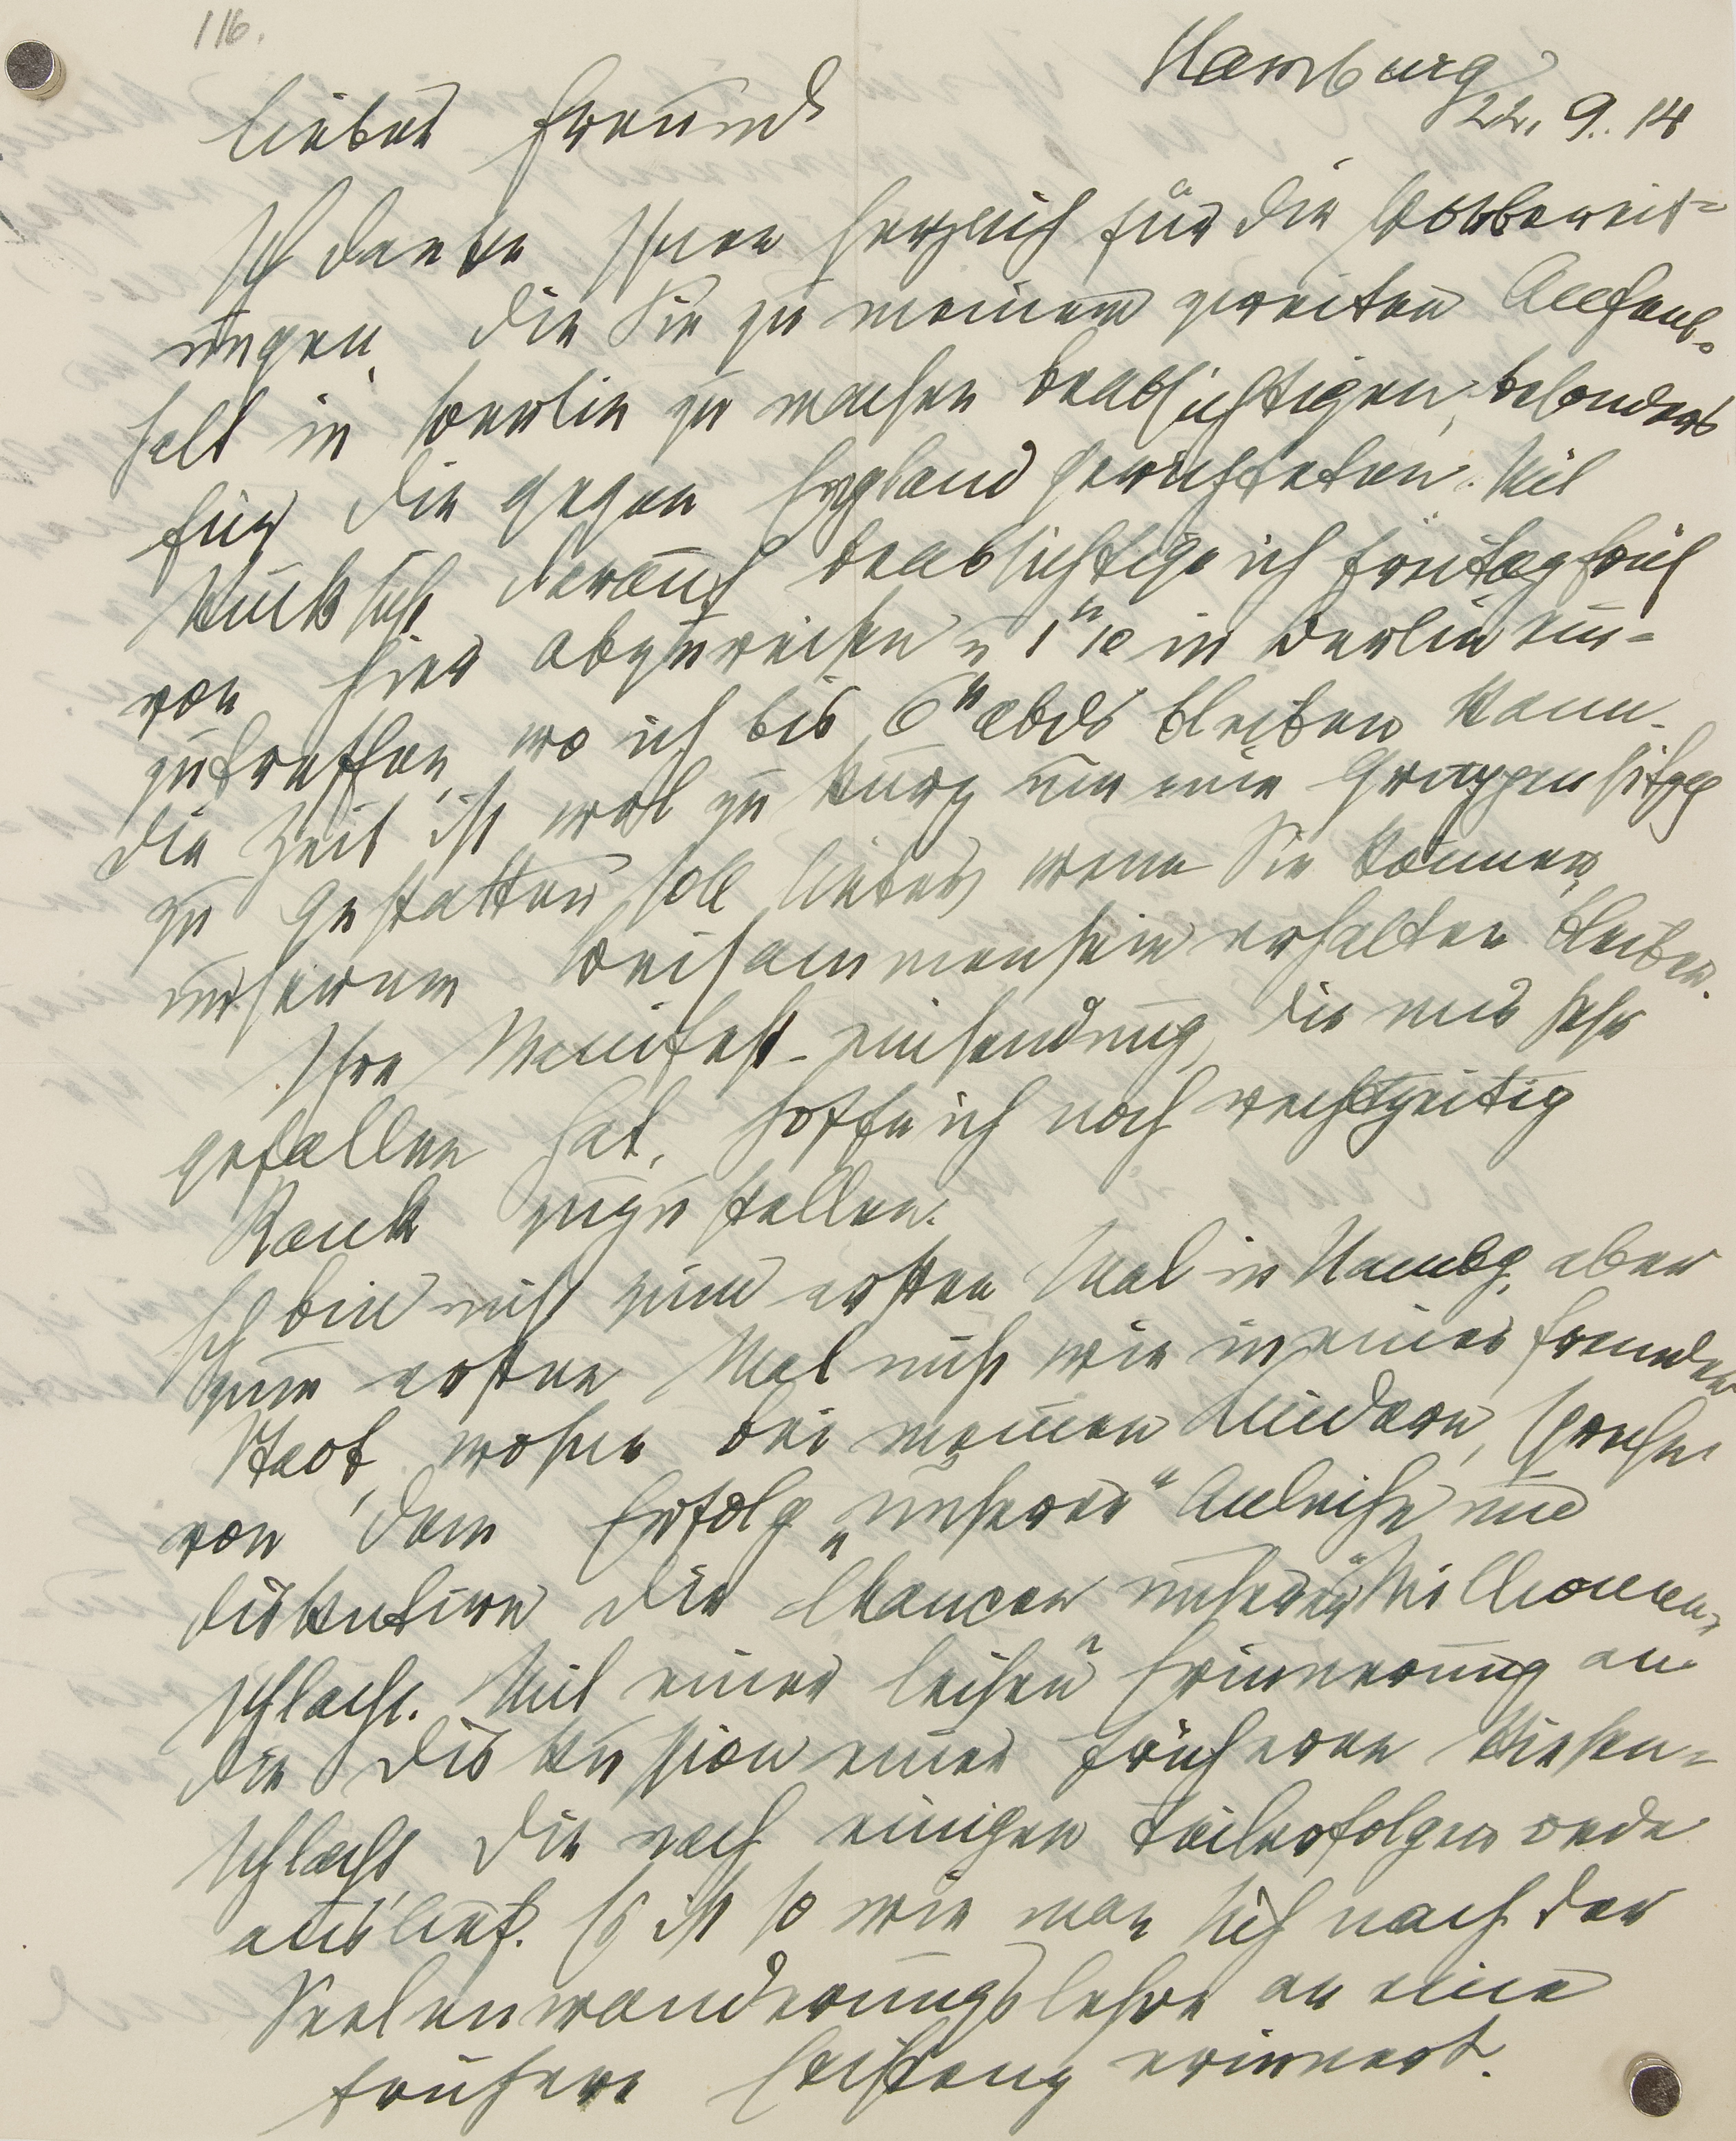 116.
Hamburg
22. 9. 14
Lieber Freund
Ich danke Ihnen herzlich für die Vorbereit-
ungen, die Sie zu meinem zweiten Aufent-
halt in Berlin zu machen beabsichtigen, besonders
für die gegen England gerichteten. Mit
Rücksicht darauf beabsichtige ich Freitag früh
von hier abzureisen u 1h10 in Berlin ein-
zutreffen, wo ich bis 6h abds bleiben kann.
Die Zeit ist wol zu kurz um eine Gruppensitzg
zu gestatten, soll lieber, wenn Sie können,
unserem Beisammensein erhalten bleiben.
Ihre Manifest-einsendung, die mir sehr
gefallen hat, hoffe ich noch rechtzeitig
Rank zuzustellen.
Ich bin nicht zum ersten Mal in Hambg, aber
zum ersten Mal nicht wie in einer fremden
Stadt, wohne bei meinen Kindern, spreche
von dem Erfolg „unserer“ Anleihe und
diskutire die Chancen „unserer“ Millionen-
schlacht. Mit einer leisen Erinnerung an
die Diskussion einer früheren Riesen-
schlacht, die nach einigen Teilerfolgen öde
auslief. Es ist so wie man sich nach der
Seelenwanderungslehre an eine
frühere Existenz erinnert.